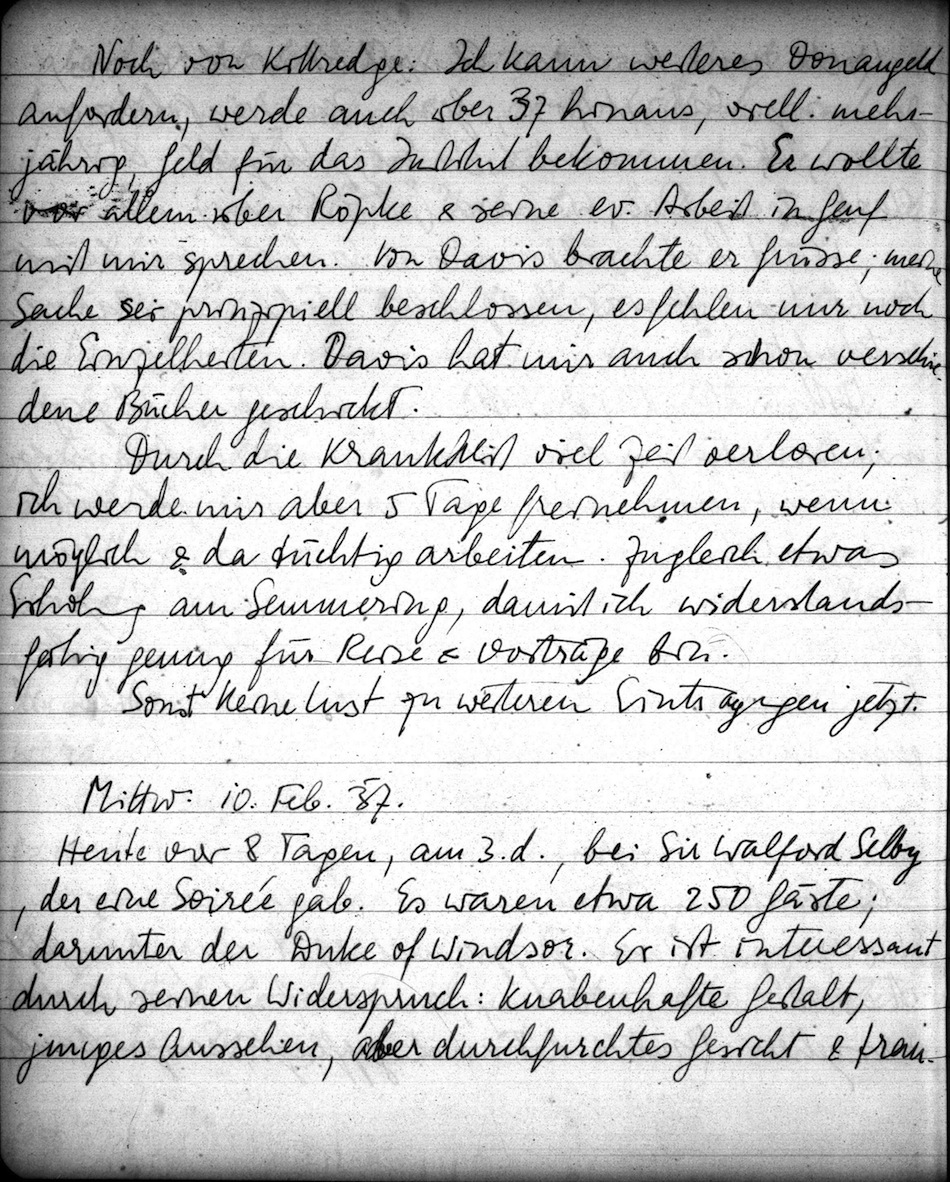 Noch von Kittredge: Ich kann weiteres Donaugeld
anfordern, werde auch über 37 hinaus, viell. mehr-
jährig, Geld für das Institut bekommen. Er wollte
vor allem über Röpke & seine ev. Arbeit in Genf
mit mir sprechen. Von Davis brachte er Grüsse; meine
Sache sei prinzipiell beschlossen, es fehlen nur noch
die Einzelheiten. Davis hat mir auch schon verschie
dene Bücher geschickt.
Durch die Krankheit viel Zeit verloren;
ich werde mir aber 5 Tage freinehmen, wenn
möglich & da tüchtig arbeiten. Zugleich etwas
Erholung am Semmering, damit ich widerstands-
fähig genug für Reise & Vorträge bin.
Sonst keine Lust zu weiteren Eintragungen jetzt.
Mittw. 10. Feb. 37.
Heute vor 8 Tagen, am 3. d., bei Sir Walford Selby
, der eine Soirée gab. Es waren etwa 250 Gäste;
darunter der Duke of Windsor. Er ist interessant
durch seinen Widerspruch: knabenhafte Gestalt,
junges Aussehen, aber durchfurchtes Gesicht & trau-